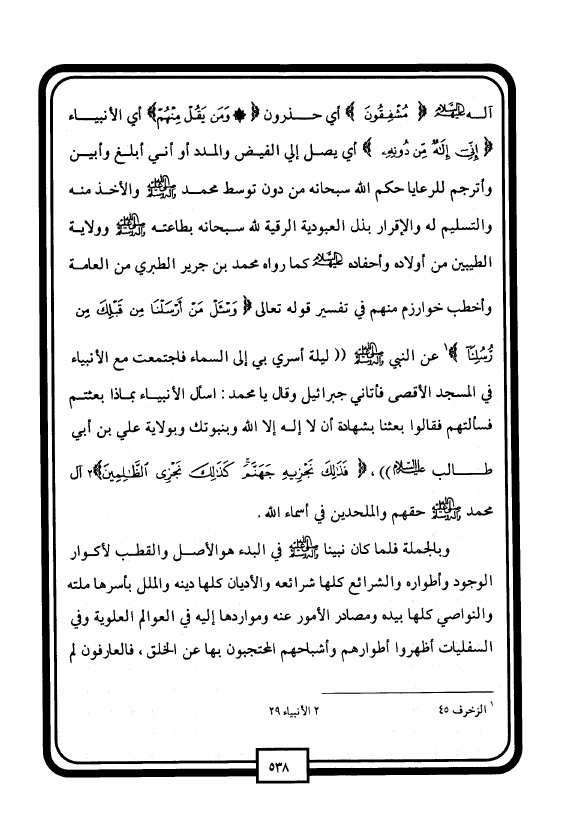 آلـه عليهم السلام ﴿ مُشْفِقُونَ ﴾ أي حـــذرون ﴿ ۞ وَمَن يَقُلْ مِنْهُمْ﴾ أي الأنبيـــاء
﴿ إِنِّي إِلَٰهٌ مِّن دُونِهِۦ ﴾ أي يصل إلي الفيض والمدد أو أنـي أبلـغ وأبـين
وأترجم للرعايا حكم الله سبحانه من دون توسط محمـد ﷺ والأخـذ منـه
والتسليم له والإقرار بذل العبودية الرقية لله سـبحانه بطاعتـه ﷺ وولايـة
الطيبين من أولاده وأحفاده عليهم السلام كما رواه محمد بن جرير الطبري من العامـة
وأخطب خوارزم منهم في تفسير قوله تعالى ﴿ وَسْـَٔلْ مَنْ أَرْسَلْنَا مِن قَبْلِكَ مِن
رُّسُلِنَآ ﴾١ عن النبي ﷺ (( ليلة أسري بي إلى السماء فاجتمعت مع الأنبياء
في المسجد الأقصى فأتاني جبرائيل وقال يا محمد : اسأل الأنبيـاء بمـاذا بعثتـم
فسألتهم فقالوا بعثنا بشهادة أن لا إلـه إلا الله وبنبوتك وبولاية علي بن أبي
طـــالب عليه السلام )) ، ﴿ فَذَٰلِكَ نَجْزِيهِ جَهَنَّمَ ۚ كَذَٰلِكَ نَجْزِي ٱلظَّـٰلِمِينَ﴾٢ آل
محمد ﷺ حقهم والملحدين في أسماء الله .
وبالجملة فلما كان نبينا ﷺ في البدء هوالأصـل والقطـب لأكـوار
الوجود وأطواره والشرائع كلها شرائعه والأديان كلها دينه والملل بأسرها ملته
والنواصي كلها بيده ومصادر الأمور عنه ومواردها إليه في العوالم العلوية وفي
السفليات أظهروا أطوارهم وأشباحهم المحتجبون بها عن الخلق ، فالعارفون لم
١ الزخرف ٤٥
٢ الأنبياء ٢٩
٥٣٨